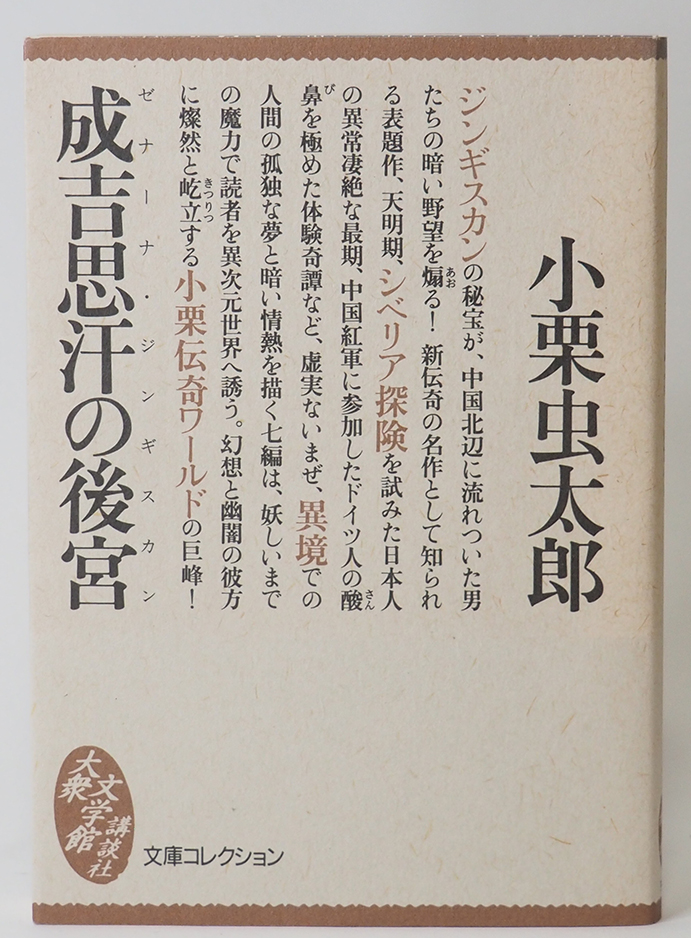 小栗虫太郎
ジンギスカンの秘宝が、中国北辺に流れついた男
たちの暗い野望を煽る！ 新伝奇の名作として知られ
あお
る表題作、天明期、シベリア探険を試みた日本人
の異常凄絶な最期、中国紅軍に参加したドイツ人の酸
さん
鼻を極めた体験奇譚など、虚実ないまぜ、異境での
び
人間の孤独な夢と暗い情熱を描く七編は、妖しいまで
の魔力で読者を異次元世界へ誘う。幻想と幽闇の彼方
に燦然と屹立する小栗伝奇ワールドの巨峰！
きつりつ
成吉思汗の後宮
ゼナーナ・ジンギスカン
講談社
大衆文学館
文庫コレクション